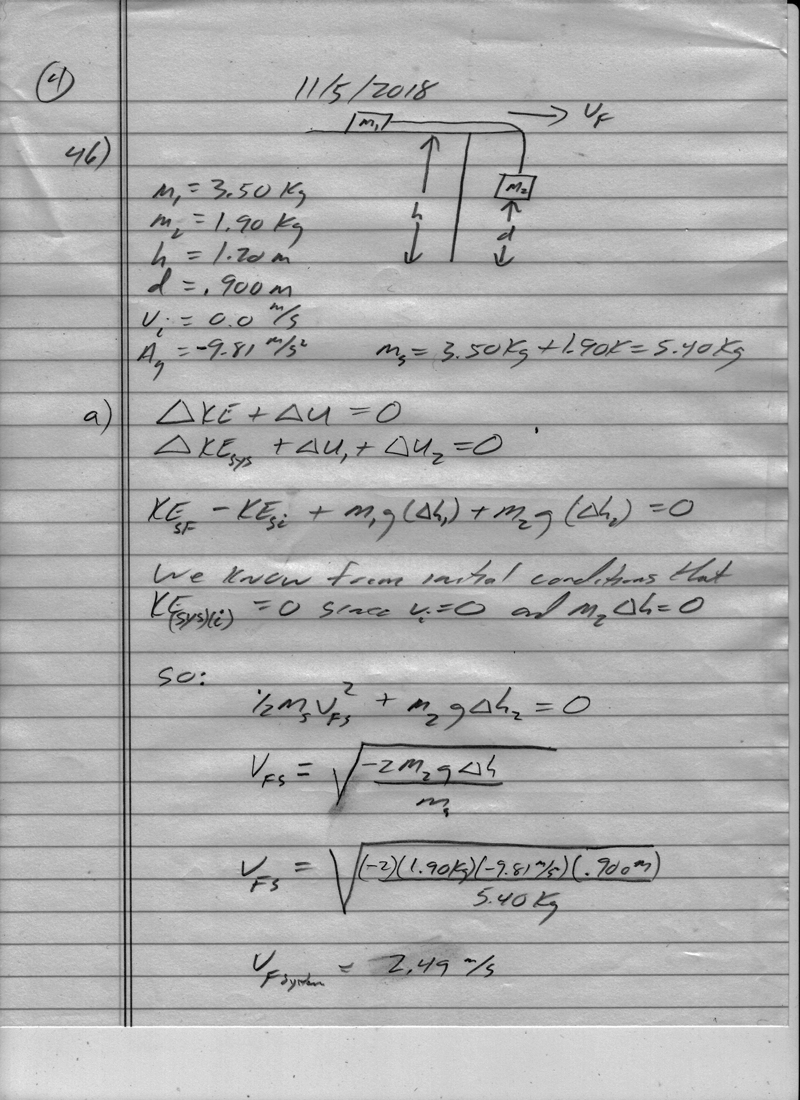 4
11/5/2018
m₁ → V_F
46)
m₂
h
d
m₁ = 3.50 Kg
m₂ = 1.90 Kg
h = 1.20 m
d = .900 m
v_i = 0.0 m/s
A_g = -9.81 m/s² m_s = 3.50 Kg + 1.90K = 5.40 Kg
a) ΔKE + ΔU = 0
ΔKE_sys + ΔU₁ + ΔU₂ = 0
KE_SF - KE_Si + m₁g(Δh₁) + m₂g(Δh₂) = 0
We know from initial conditions that
KE_(sys)(i) = 0 since v_i = 0 and m₂Δh = 0
so:
½ m_s V_FS² + m₂gΔh₂ = 0
V_FS = √(-2m₂gΔh / m_s)
V_FS = √((-2)(1.90Kg)(-9.81 m/s)(.900m) / 5.40 Kg)
V_F system = 2.49 m/s